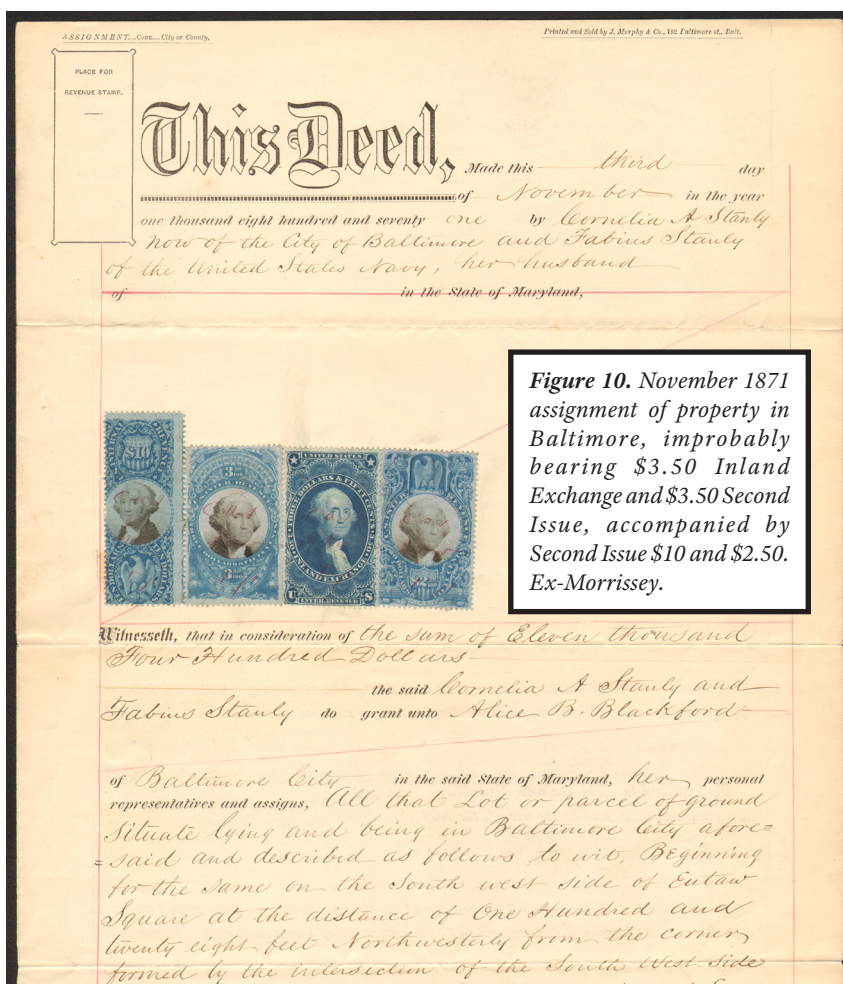 ASSIGNMENT....CORR.... City or County.
Printed and Sold by J. Murphy & Co., 182 Baltimore st., Balt.
PLACE FOR
REVENUE STAMP.
This Deed, Made this third day
of November in the year
one thousand eight hundred and seventy one by Cornelia A Stanly
now of the City of Baltimore and Fabius Stanly
of the United States Navy, her husband
of in the State of Maryland,
Figure 10. November 1871
assignment of property in
Baltimore, improbably
bearing $3.50 Inland
Exchange and $3.50 Second
Issue, accompanied by
Second Issue $10 and $2.50.
Ex-Morrissey.
$10
UNITED STATES
THREE DOLLARS & FIFTY CENTS
INLAND EXCHANGE
U INTER. REVENUE S
Witnesseth, that in consideration of the sum of Eleven thousand
Four Hundred Dollars
the said Cornelia A Stanly and
Fabius Stanly do grant unto Alice B. Blackford
of Baltimore City in the said State of Maryland, her personal
representatives and assigns, All that Lot or parcel of ground
situate lying and being in Baltimore City afore=
=said and described as follows to wit, Beginning
for the same on the South west side of Eutaw
Square at the distance of One Hundred and
twenty eight feet Northwesterly from the corner
formed by the intersection of the South West side